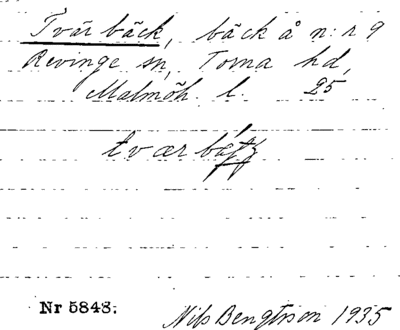 Tvärbäck, bäck å n:r 9
Revinge sn, Torna hd,
Malmöh. l. 25
tvær
Nr 5843.
Nils Bengtsson 1935